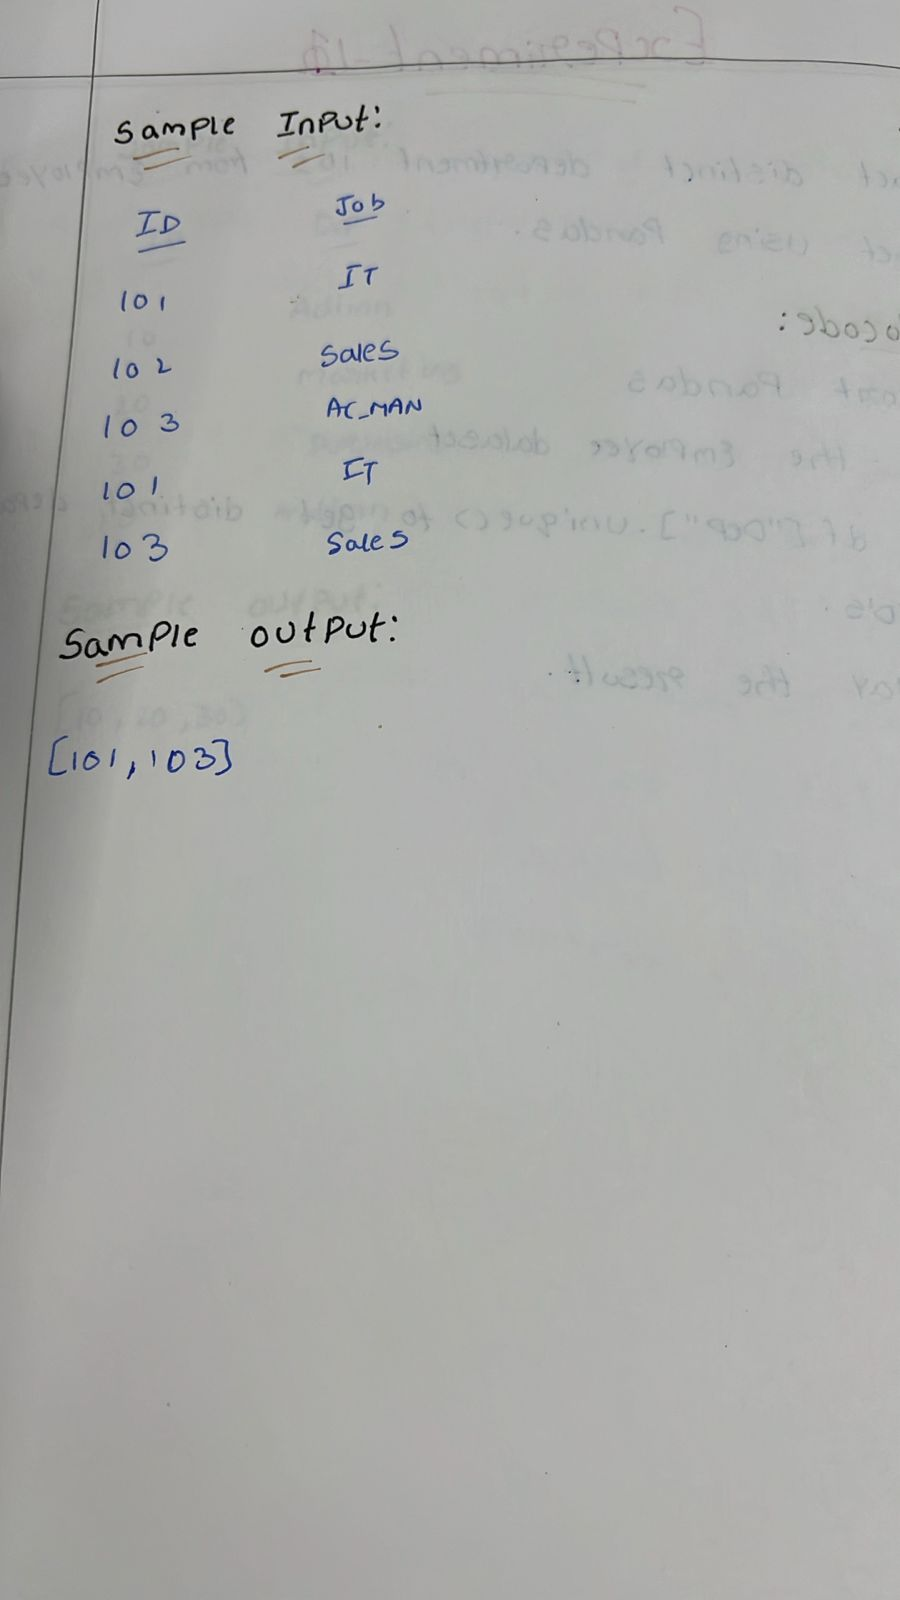 Sample Input:
ID Job
101 IT
102 Sales
103 AC_MAN
101 IT
103 Sales
Sample output:
[101, 103]